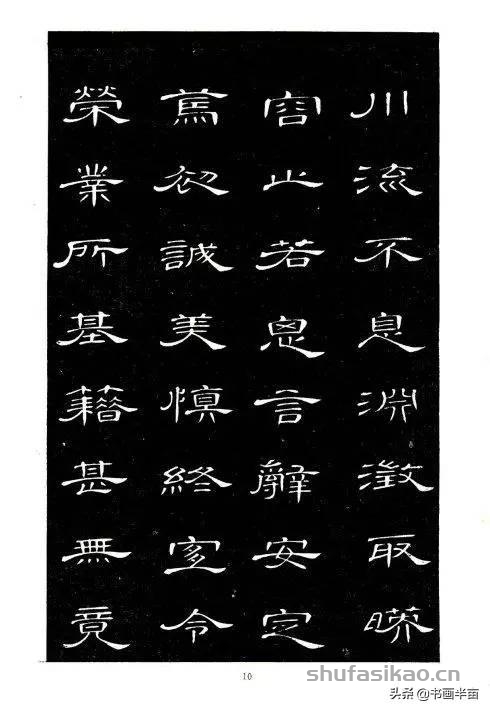 川流不息淵澂取暎
容止若思言辭安定
篤初誠美慎終宜令
榮業所基籍甚無竟
10
shufasikao.cn
头条 @书画半亩